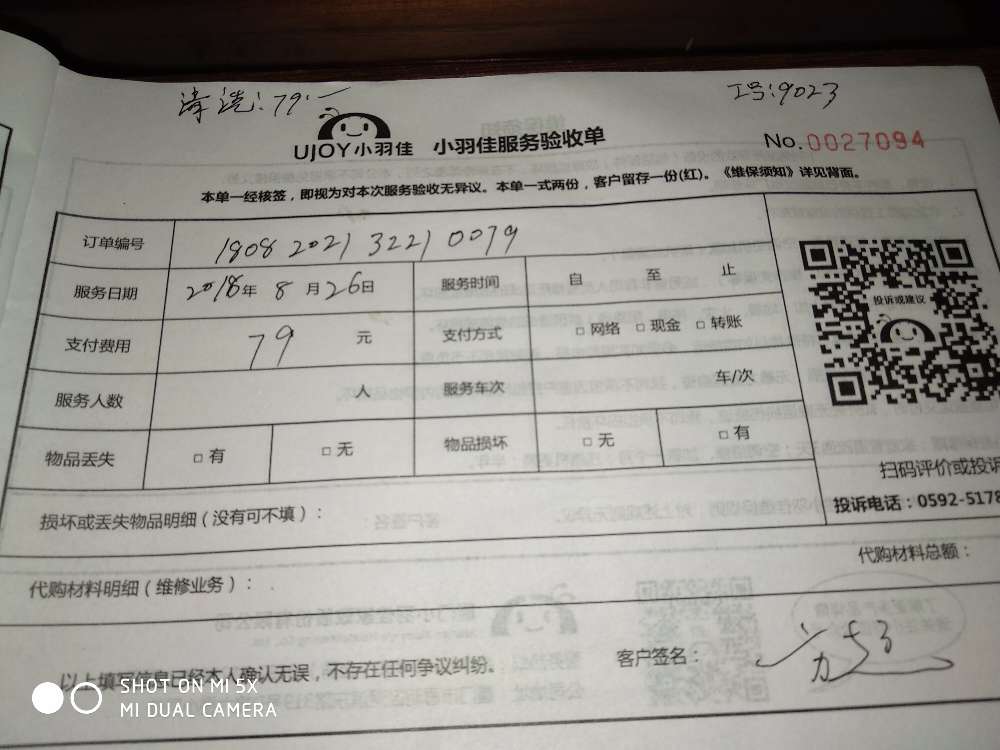 清洗:79.—
工号:9023
UJOY小羽佳 小羽佳服务验收单
No.0027094
本单一经核签，即视为对本次服务验收无异议。本单一式两份，客户留存一份(红)。《维保须知》详见背面。
订单编号 1808 2021 3221 0079
服务日期 2018年 8月26日 服务时间 自 至 止
支付费用 79 元 支付方式 □ 网络 □ 现金 □ 转账
服务人数 人 服务车次 车/次
物品丢失 □ 有 □ 无 物品损坏 □ 无 □ 有
投诉或建议
扫码评价或投诉
投诉电话：0592-5178
损坏或丢失物品明细（没有可不填）：
代购材料明细（维修业务）：
代购材料总额：
以上填写信息已经本人确认无误，不存在任何争议纠纷。 客户签名：
SHOT ON MI 5X
MI DUAL CAMERA